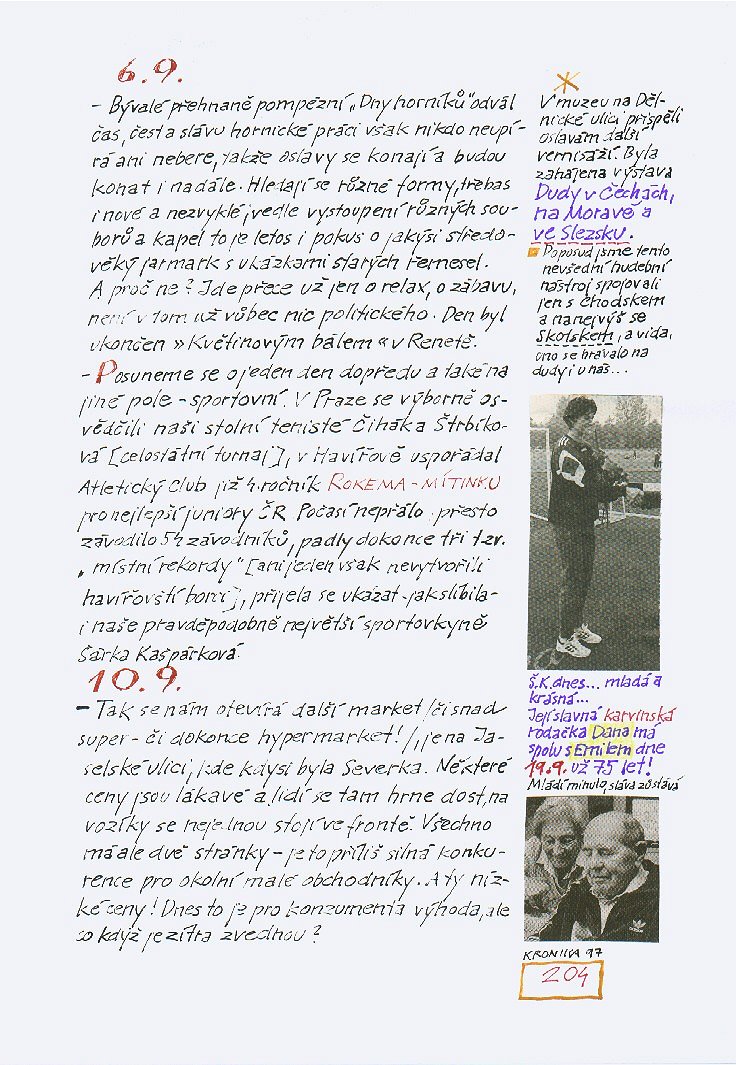 6.9.
- Bývalé přehnaně pompézní „Dny horníků" odvál
čas, čest a slávu hornické práci však nikdo neupí-
rá ani nebere, takže oslavy se konají a budou
konat i nadále. Hledají se různé formy, třebas
i nové a nezvyklé, vedle vystoupení různých sou-
borů a kapel to je letos i pokus o jakýsi středo-
věký jarmark s ukázkami starých řemesel.
A proč ne? Jde přece už jen o relax, o zábavu,
není v tom už vůbec nic politického. Den byl
ukončen » Květinovým bálem « v Renetě.
- Posuneme se o jeden den dopředu a také na
jiné pole - sportovní. V Praze se výborně os-
vědčili naši stolní tenisté Čihák a Štrbíko-
vá [celostátní turnaj], v Havířově uspořádal
Atletický club již 4. ročník ROKEMA - MÍTINKU
pro nejlepší juniory ČR. Počasí nepřálo, přesto
závodilo 54 závodníků, padly dokonce tři tzv.
„místní rekordy" [ani jeden však nevytvořili
havířovští borci], přijela se ukázat - jak slíbila -
i naše pravděpodobně největší sportovkyně
Šárka Kašpárková.
10.9.
- Tak se nám otevírá další market /či snad
super - či dokonce hypermarket! /, je na Ja-
selské ulici, kde kdysi byla Severka. Některé
ceny jsou lákavé a lidí se tam hrne dost, na
vozíky se nejednou stojí ve frontě. Všechno
má ale dvě stránky - je to příliš silná konku-
rence pro okolní malé obchodníky. A ty níz-
ké ceny! Dnes to je pro konzumenta výhoda, ale
co když je zítra zvednou?
V muzeu na Děl-
nické ulici přispěli
oslavám další
vernisáží. Byla
zahájena výstava
Dudy v Čechách,
na Moravě a
ve Slezsku.
Doposud jsme tento
nevšední hudební
nástroj spojovali
jen s Chodskem
a nanejvýš se
Skotskem, a vida,
ono se hrávalo na
dudy i u nás...
Š.K. dnes... mladá a
krásná...
Její slavná karvinská
rodačka Dana má
spolu s Emilem dne
19.9. už 75 let!
Mládí minulo, sláva zůstává
KRONIKA 97
204